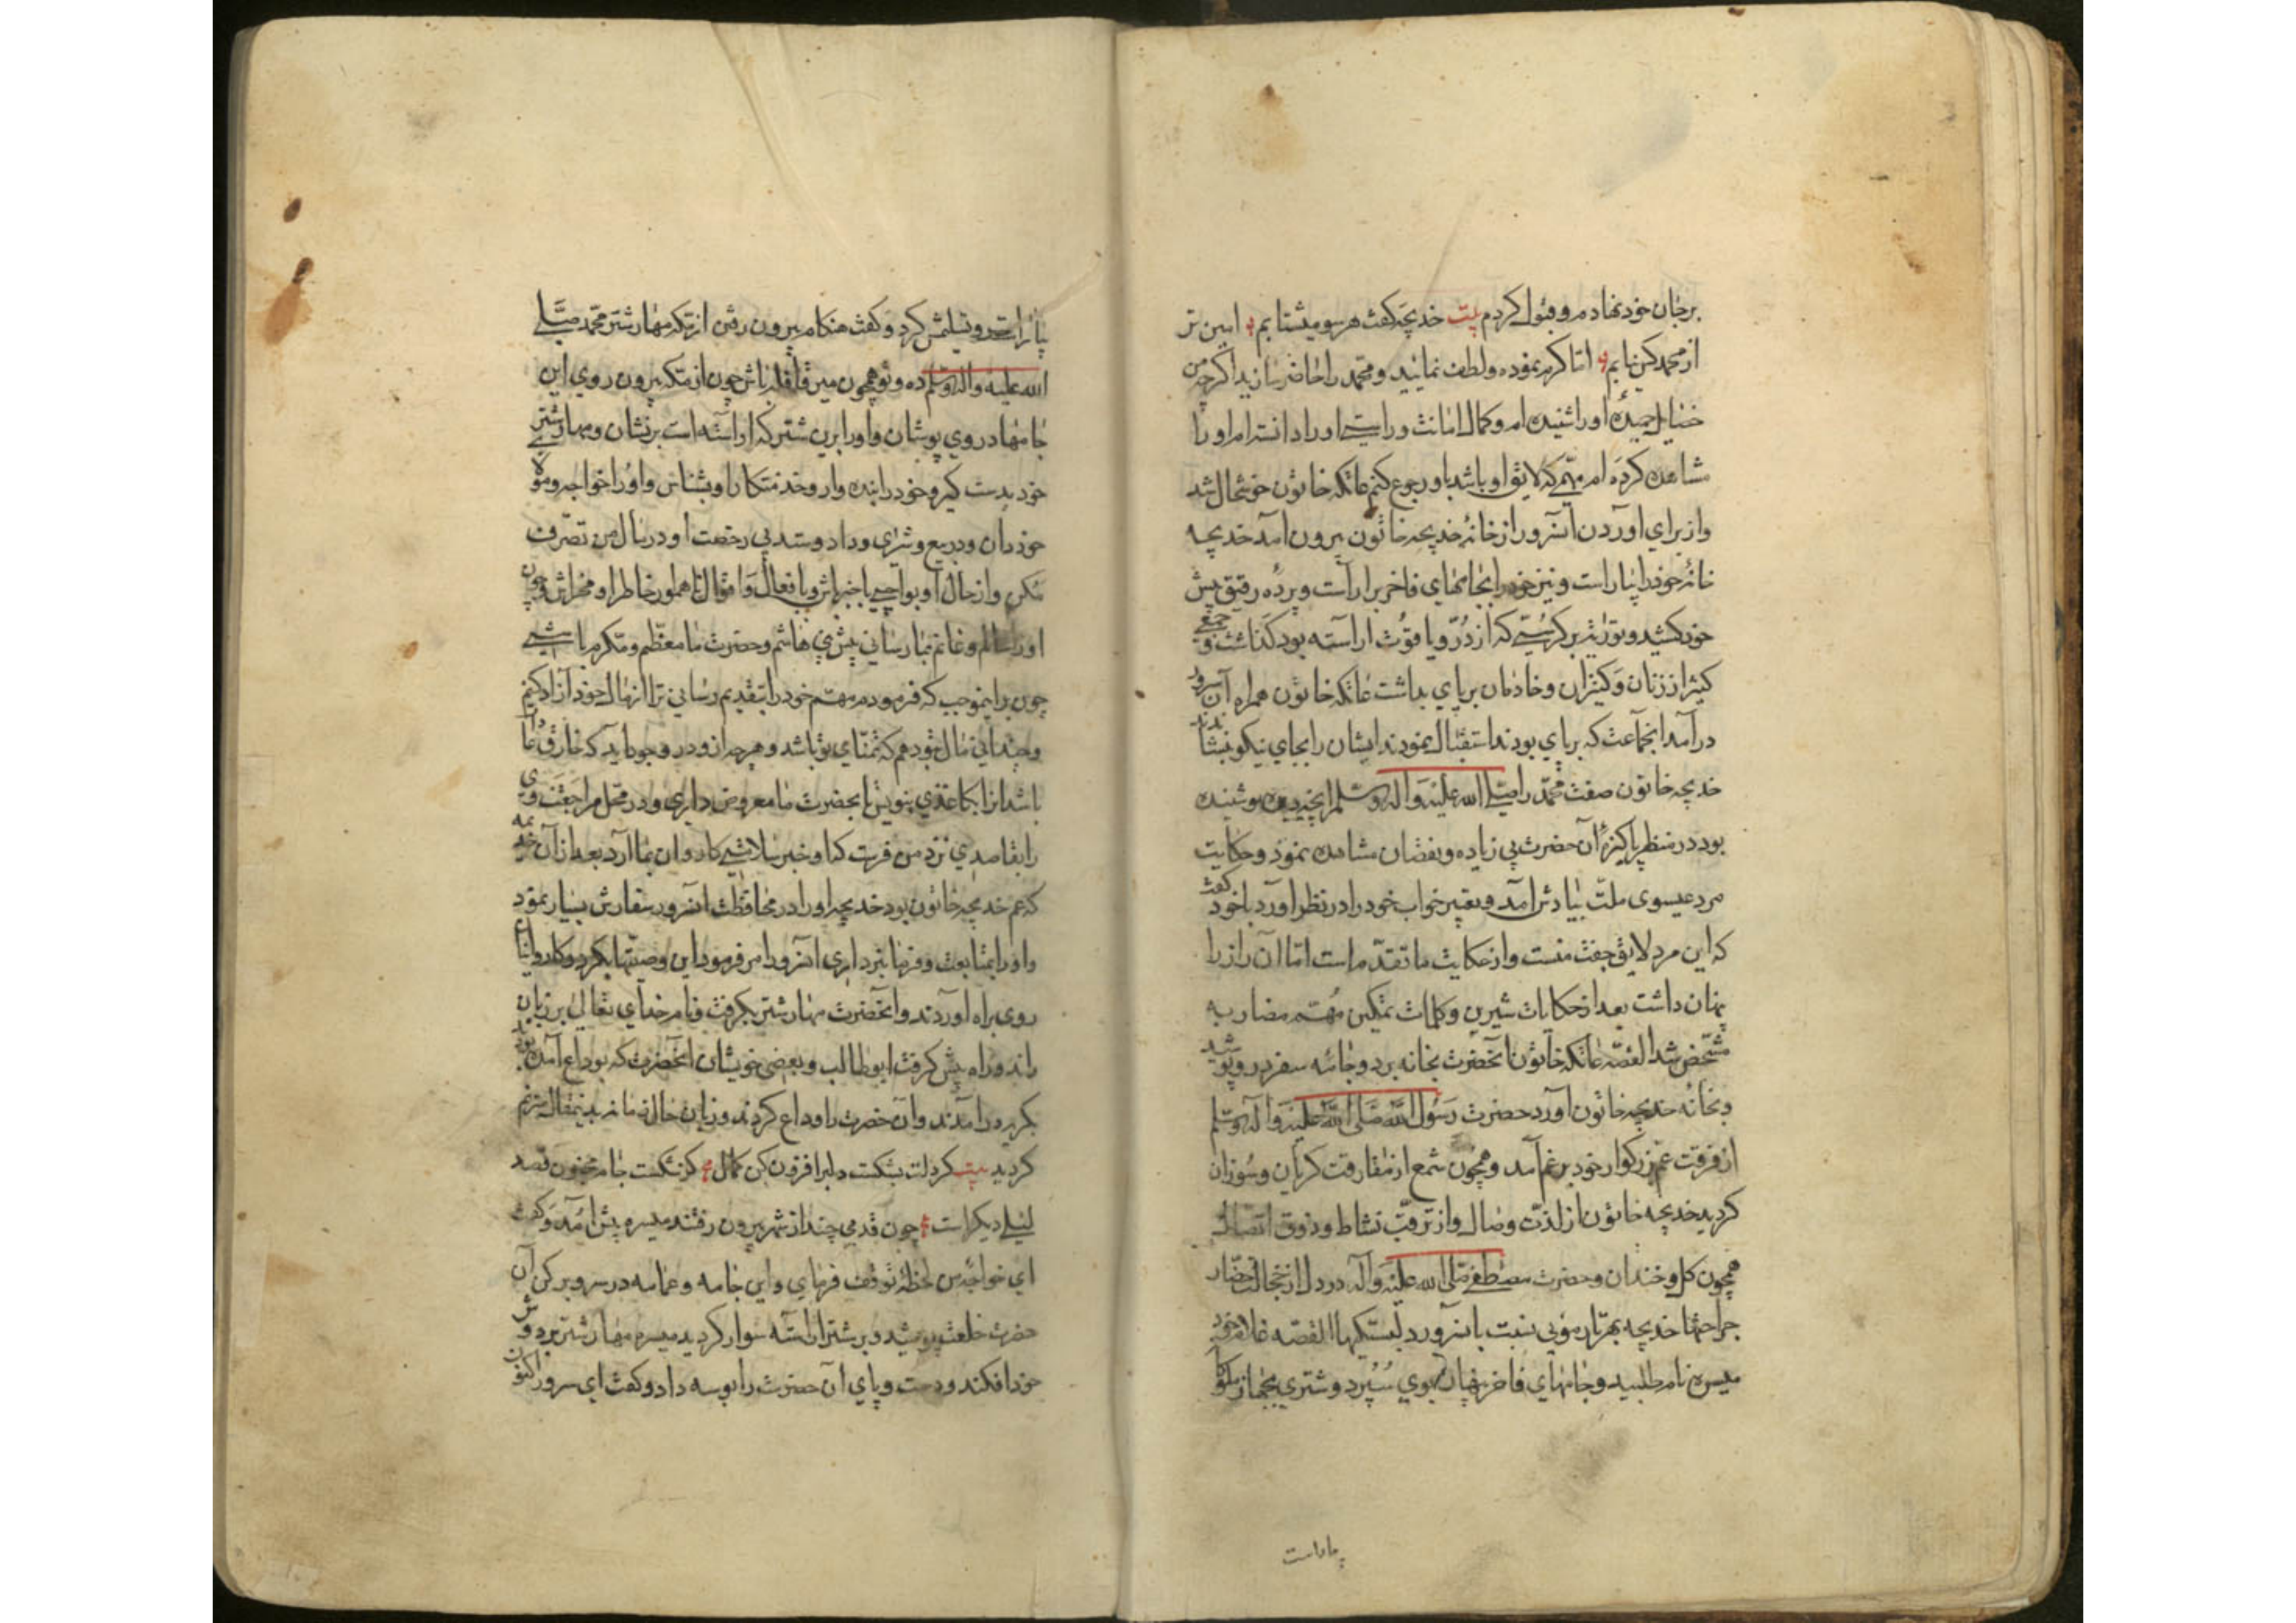 برجان خود نهادم و قبول کردم بیت خدیجه گفت هر سو میشتابم امین تر
از محمد کس نیابم اما کرم نموده ولطف نمایید و محمد را حاضر سازید اگر چه من
خصایل حمیدهٔ او را شنیده ام و کمال امانت و راستی او را دانسته ام او را
مشاهده کرده ام مهمی که لایق او باشد باو رجوع کنم عاتکه خاتون خوشحال شد
و از برای آوردن آنسرور از خانهٔ خدیجه خاتون بیرون آمد خدیجه
خانهٔ خود را بیاراست و نیز خود را بجامهای فاخر برآراست و پرده رقیق پیش
خود کشید و تورات بر کرسیی که از درّ و یاقوت آراسته بود گذاشت و جمعی
کثیر از زنان و کنیزان و خادمان برپای بداشت عاتکه خاتون همراه آن سرور
درآمد آنجماعت که برپای بودند استقبال نمودند ایشان را بجای نیکو بنشاندند
خدیجه خاتون صفت محمد را صلی الله علیه و آله وسلم آنچه دیده و شنیده
بود در منظر پاکیزهٔ آن حضرت بی زیاده و نقصان مشاهده نمود و حکایت
مرد عیسوی ملت بیادش آمد و تعبیر خواب خود را در نظر آورد با خود گفت
که این مرد لایق جفت منست و از حکایت ما تقدم است اما آن راز را
پنهان داشت بعد از حکایات شیرین و کلمات نمکین مهم مضاربه
مشخص شد القصه عاتکه خاتون آنحضرت بخانه برد و جامهٔ سفر در و پوشید
و بخانه خدیجه خاتون آورد حضرت رسول الله صلی الله علیه و آله وسلم
از فرقت عم بزرگوار خود بر غم آمد و همچون شمع از مفارقت گریان و سوزان
گردید خدیجه خاتون از لذت وصال و از ترقب نشاط و ذوق اتصال
همچون گل و خندان و حضرت مصطفی صلی الله علیه و آله در دل از خجالت حضار
جراحتها خدیجه بهر تار مویی نسبت بآنسرور دلبستگیها القصه غلام خود
میسره نام طلبید و جامهای فاخر پنهان بوی سپرد و شتری بجهاز ملوکانه
بیاراست
بیاراست و تسلیمش کرد و گفت هنکام بیرون رفتن از مکه مهار شتر محمد صلی
الله علیه و آله وسلم ده و تو همچون میر قافله باش چون از مکه بیرون روی این
جامها در وی پوشان و او را برین شتر که آراسته است بر نشان و مهار شتر
خود بدست گیر و خود را بنده وار و خدمتکار او بشناس و او را خواجه و مولای
خود دان و در بیع و شرای و داد و ستد بی رخصت او در مال من تصرف
مکن و از حال او بواجبی باخبر باش و با فعال و اقوال ناهموار خاطر او مخراش و چون
او را سالم و غانم بما رسانی پیش بنی هاشم و حضرت ما معظم و مکرم باشی
چون برایموجب که فرمودم مهم خود را بتقدیم رسانی ترا از مال خود آزاد کنم
و چندانی مال بتو دهم که تمنای تو باشد و هر چه از و در وجود آید که خارق عادات
باشد آنرا بکاغذی بنویس تا بحضرت ما معروض داری و در محل مراجعت وی
را بقاصدی نزد من فرست که او خبر سلامتی کاروان بما آرد بعد از آن
که عم خدیجه خاتون بود خدیجه او را در محافظت آنسرور سفارش بسیار نمود
و او را بمتابعت و فرمانبرداری آنسرور امر فرمود این وصیتها بکرد و کاروانیان
روی براه آوردند و آنحضرت مهار شتر بگرفت و نام خدای تعالی بر زبان
راند و راه پیش گرفت ابوطالب و بعضی خویشان آنحضرت که بوداع آمده بودند
بگریه درآمدند و آن حضرت را وداع کردند و زبان حال زمانه بدینمقال مترنم
گردید بیت گر دلت بشکست دلبر افزون کن کمال گر شکست جام مجنون قصد
لیلی دیگر است چون قدمی چند از شهر بیرون رفتند میسره پیش آمد و گفت
ای خواجهٔ من لحظهٔ توقف فرمای و این جامه و عمامه در سر و بر کن آن
حضرت خلعت پوشید و بر شتر آراسته سوار گردید میسره مهار شتر بر دوش
خود افکند و دست و پای آن حضرت را بوسه داد و گفت ای سرور اکنون